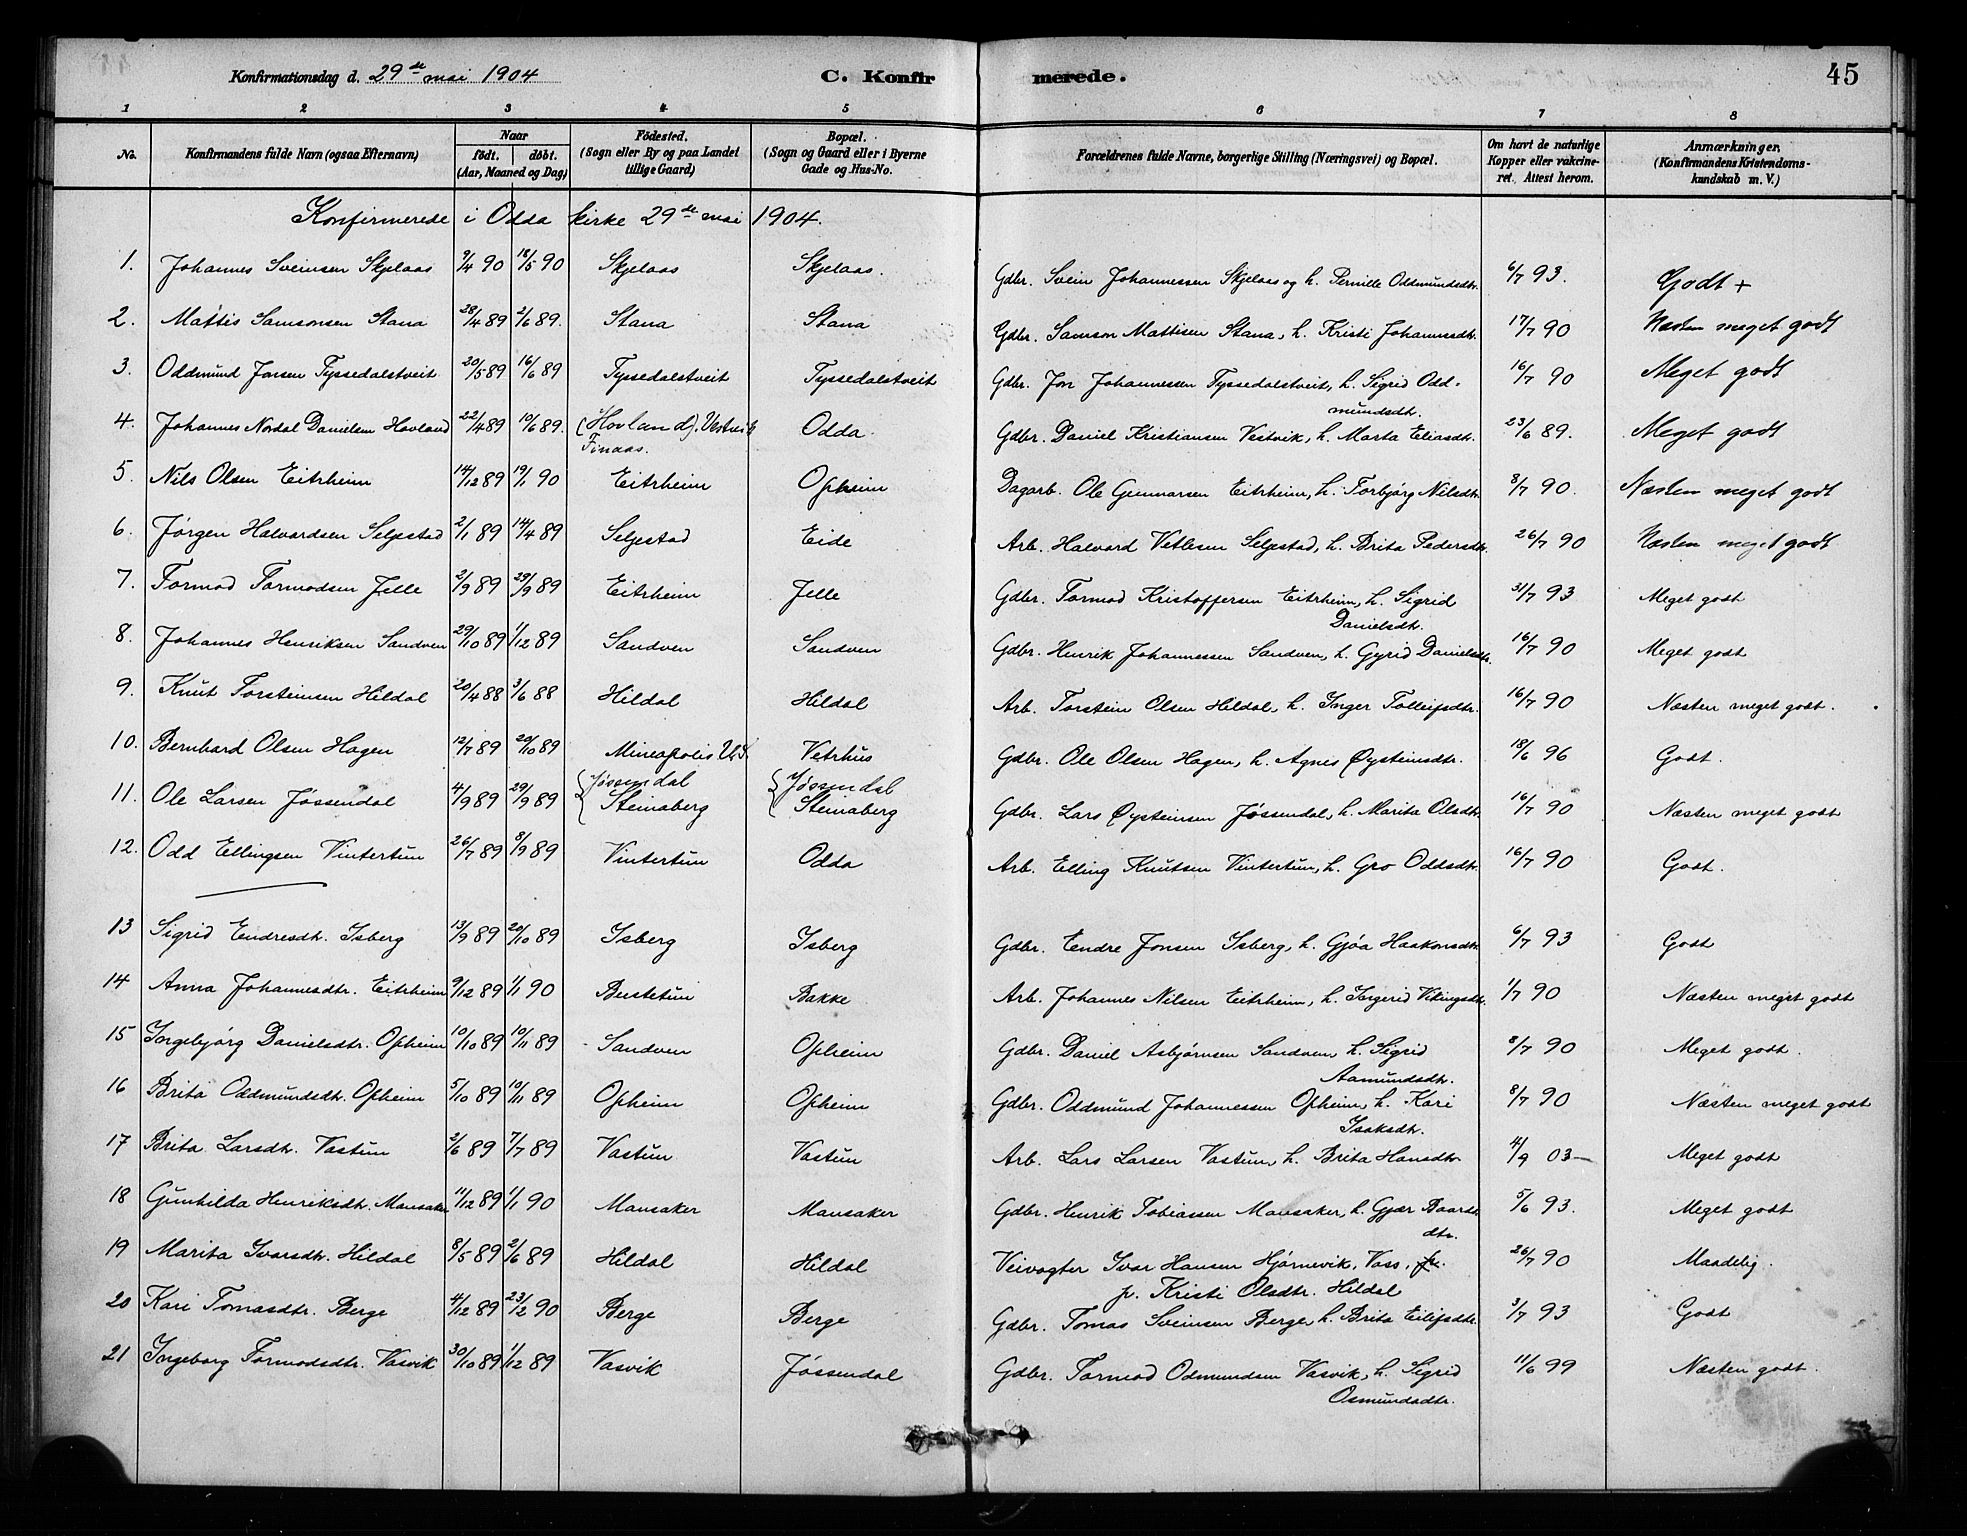 Konfirmationsdag d. 29de mai 1904 C. Konfirmerede. 45
1 2 3 4 5 6 7 8
No. Konfirmandens fulde Navn (ogsaa Efternavn) Naar födt. döbt. (Aar, Maaned og Dag) Födested. (Sogn eller By og paa Landet tillige Gaard) Bopæl. (Sogn og Gaard eller i Byerne Gade og Hus-No. Forældrenes fulde Navne, borgerlige Stilling (Næringsvei) og Bopæl. Om havt de naturlige Kopper eller vakcineret. Attest herom. Anmærkninger, (Konfirmandens Kristendomskundskab m. V.)
Konfirmerede i Odda kirke 29de mai 1904.
1. Johannes Sveinsen Skjelaas 9/4 90 18/5 90 Skjelaas Skjelaas. Gdbr. Svein Johannessen Skjelaas og h. Pernille Oddmundsdtr. 6/7 93. Godt +
2. Mattis Samsonsen Stana 28/4 89 2/6 89. Stana Stana Gdbr. Samson Mattisen Stana, h. Kristi Johannesdtr. 17/7 90 Næsten meget godt
3. Oddmund Jonsen Tyssedalstveit 20/5 89 16/6 89 Tyssedalstveit Tyssedalstveit Gdbr. Jon Johannessen Tyssedalstveit, h. Sigrid Oddmundsdtr. 16/7 90 Meget godt
4. Johannes Nordal Danielsen Hovland 22/4 89 10/6 89. (Hovland). Vestvik Finaas. Odda Gdbr. Daniel Kristiansen Vestvik, h. Marta Eliasdtr. 23/6 89. Meget godt
5. Nils Olsen Eitrheim 14/12 89 19/1 90 Eitrheim Opheim Dagarb. Ole Gunnarsen Eitrheim, h. Torbjørg Nilsdtr. 8/7 90. Næsten meget godt
6. Jørgen Halvardsen Seljestad 2/1 89 14/4 89 Seljestad Eide Arb. Halvard Vetlesen Seljestad, h. Brita Pedersdtr. 26/7 90 Næsten meget godt
7. Tormod Tormodsen Jelle 2/9 89 29/9 89 Eitrheim Jelle Gdbr. Tormod Kristoffersen Eitrheim, h. Sigrid Danielsdtr. 31/7 93 Meget godt
8. Johannes Henriksen Sandven 29/10 89 1/12 89 Sandven Sandven Gdbr. Henrik Johannessen Sandven, h. Gyrid Danielsdtr. 16/7 90 Meget godt
9. Knut Torsteinsen Hildal 20/4 88 3/6 88 Hildal Hildal Arb. Torstein Olsen Hildal, h. Inger Tolleifsdtr. 16/7 90 Næsten meget godt.
10. Bernhard Olsen Hagen 12/7 89 20/10 89 Mineapolis U.S. Vetrhus Gdbr. Ole Olsen Hagen, h. Agnes Øysteinsdtr. 18/6 96 Godt.
11. Ole Larsen Jøssendal 4/9 89 29/9 89 {Jøssendal Steinaberg {Jøssendal Steinaberg Gdbr. Lars Øysteinsen Jøssendal, h. Marita Olsdtr. 16/7 90 Næsten meget godt
12. Odd Ellingsen Vintertun 26/7 89 8/9 89 Vintertun Odda Arb. Elling Knutsen Vintertun, h. Gro Oddsdtr. 16/7 90 Godt.
13 Sigrid Endresdtr. Isberg 13/9 89 20/10 89 Isberg Isberg Gdbr. Endre Jonsen Isberg, h. Gjøa Haakonsdtr. 6/7 93 Godt
14 Anna Johannesdtr. Eitrheim 9/12 89 1/1 90 Bustetun Bakke Arb. Johannes Nilsen Eitrheim, h. Ingerid Vikingsdtr. 1/7 90 Næsten meget godt
15 Ingebjørg Danielsdtr. Opheim 10/10 89 10/11 89 Sandven Opheim Gdbr. Daniel Asbjørnsen Sandven h. Sigrid Aamundsdtr. 8/7 90 Meget godt.
16 Brita Oddmundsdtr. Opheim 5/10 89 10/11 89 Opheim Opheim Gdbr. Oddmund Johannessen Opheim, h. Kari Isaksdtr. 8/7 90 Næsten meget godt
17 Brita Larsdtr. Vastun 2/6 89 7/7 89 Vastun Vastun Arb. Lars Larsen Vastun, h. Brita Hansdtr. 4/9 03- Meget godt
18 Gunhilda Henriksdtr. Mansaker 11/12 89 1/1 90 Mansaker Mansaker Gdbr. Henrik Tobiassen Mansaker, h. Gjær Baardsdtr. 5/6 93. Meget godt
19 Marita Ivarsdtr. Hildal 8/5 89 2/6 89 Hildal Hildal Veivogter Ivar Hansen Hjørnevik, Voss, p. Kristi Olsdtr. Hildal 26/7 90 Maadelig.
20 Kari Tomasdtr. Berge 4/12 89 23/2 90 Berge Berge Gdbr. Tomas Sveinsen Berge, h. Brita Eilifsdtr. 3/7 93 Godt
21 Ingeborg Tormodsdtr. Vasvik 30/10 89 1/12 89 Vasvik Jøssendal Gdbr. Tormod Odmundsen Vasvik, h. Sigrid Osmundsdtr. 11/6 99 Næsten godt.